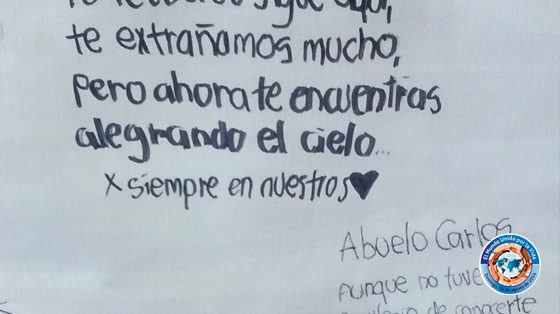 tu recuerdo sigue aquí,
te extrañamos mucho,
pero ahora te encuentras
alegrando el cielo...
x siempre en nuestros ♥
Abuelo Carlos
aunque no tuve
de conocerte
El Mundo Unido por la Vida